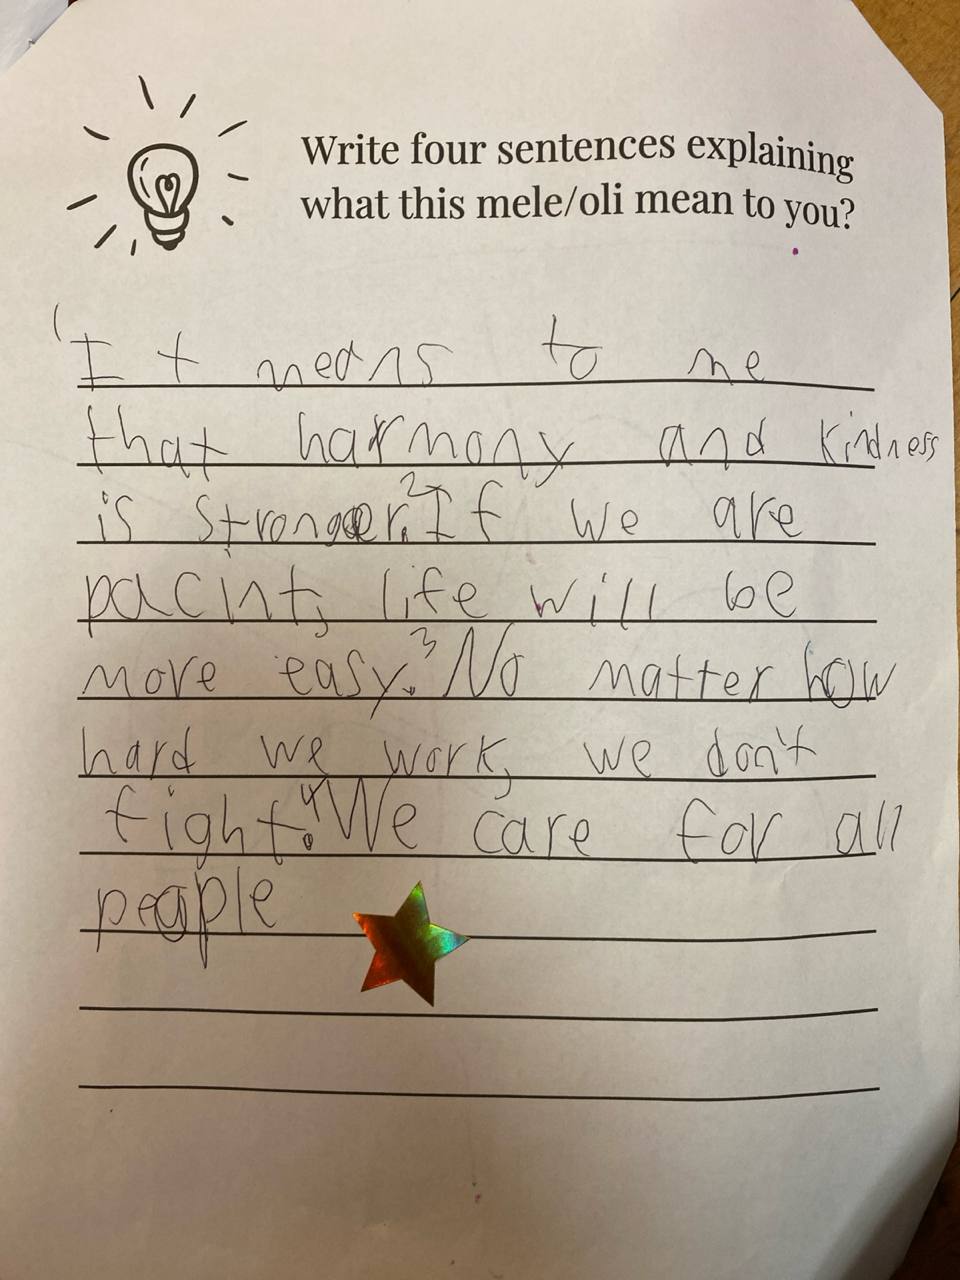 Write four sentences explaining
what this mele/oli mean to you?
1 It means to me
that harmony and kindness
is stronger. 2 If we are
pacint, life will be
more easy. 3 No matter how
hard we work, we don't
fight. 4 We care for all
people